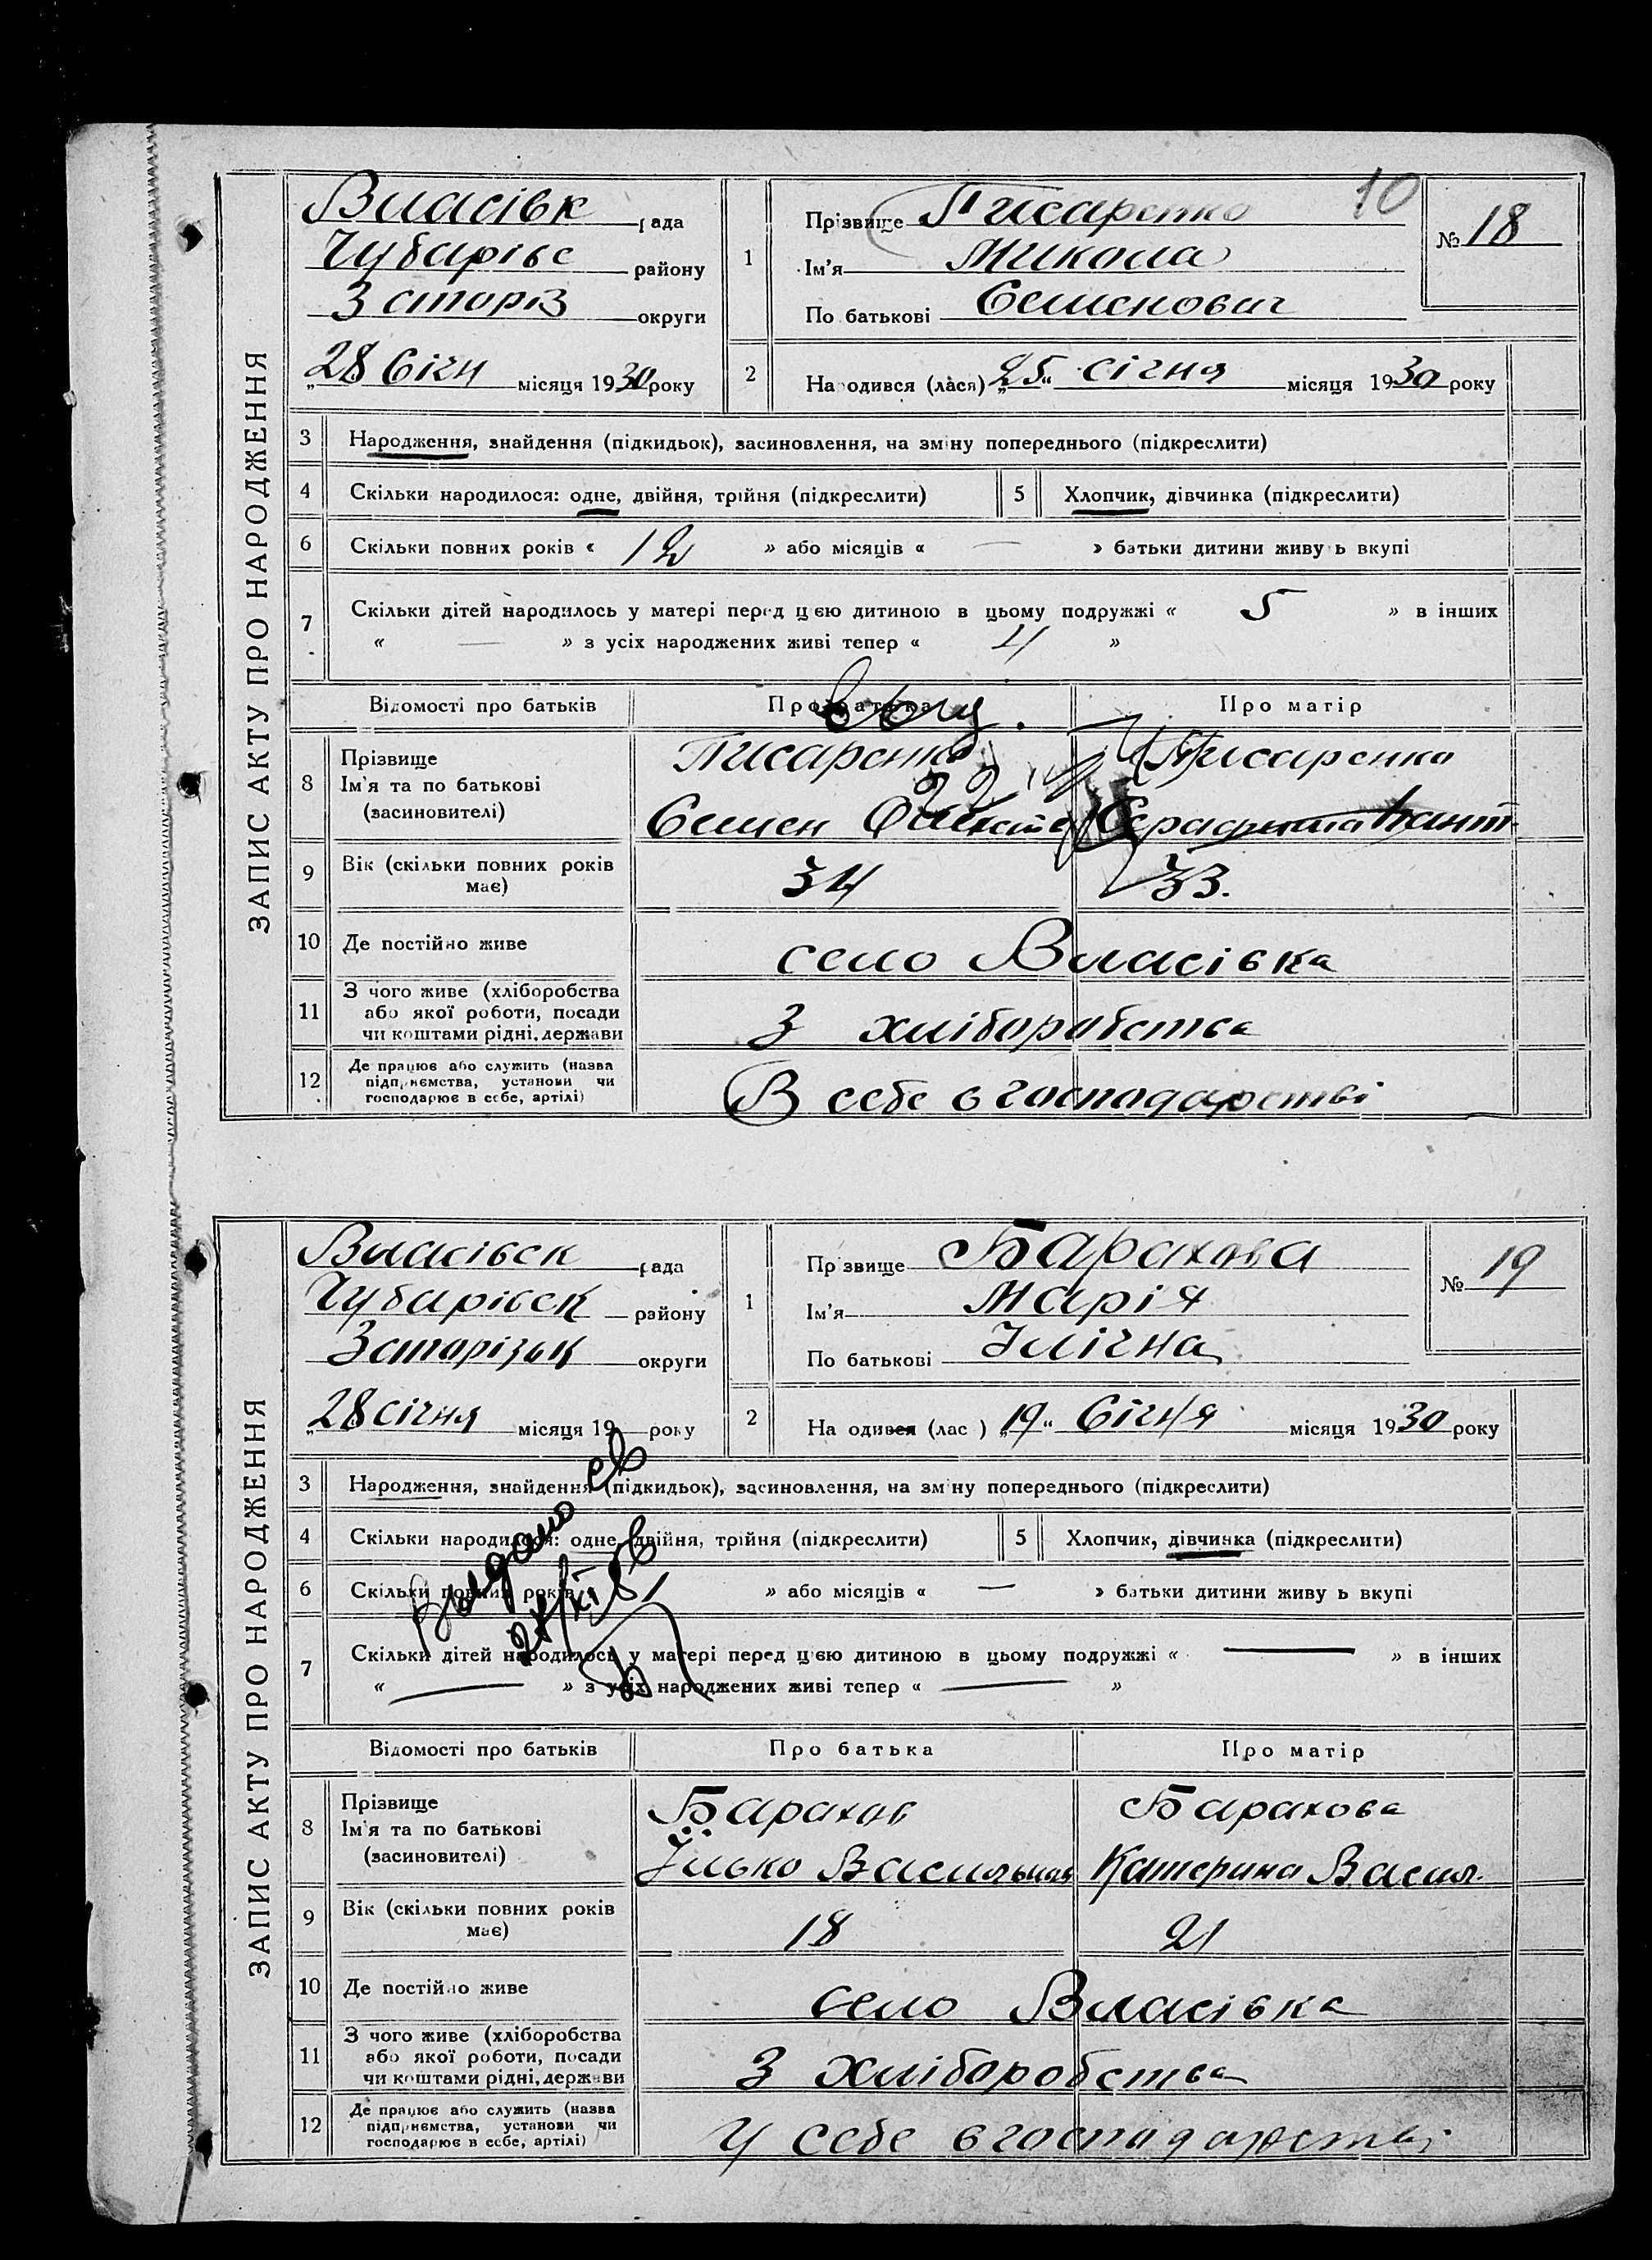 10
ЗАПИС АКТУ ПРО НАРОДЖЕННЯ
Власівк рада
Чубарівс району
Зсторіз округи
„28 Січн місяця 1930 року
1
Прізвище Писаренко
Ім'я Микола
По батькові Семенович
№ 18
2
Народився (лася) „25“ січня місяця 1930 року
3 Народження, знайдення (підкидьок), засиновлення, на зміну попереднього (підкреслити)
4 Скільки народилося: одне, двійня, трійня (підкреслити)
5 Хлопчик, дівчинка (підкреслити)
6 Скільки повних років « 12 » або місяців « — » батьки дитини живуть вкупі
7 Скільки дітей народилось у матері перед цією дитиною в цьому подружжі « 5 » в інших
« — » з усіх народжених живі тепер « 4 »
Відомості про батьків Про батька Про матір
8 Прізвище
Ім'я та по батькові
(засиновителі)
Писаренко Писаренко
Семен
9 Вік (скільки повних років
має)
34 33.
10 Де постійно живе село Власівка
11 З чого живе (хліборобства
або якої роботи, посади
чи коштами рідні, держави
З хліборобства
12 Де працює або служить (назва
підприємства, установи чи
господарює в себе, артілі)
В себе в господарстві
ЗАПИС АКТУ ПРО НАРОДЖЕННЯ
Власівск рада
Чубарівск району
Зсторізьк округи
„28 січня місяця 19 року
1
Прізвище Барахова
Ім'я Марія
По батькові Ілічна
№ 19
2
На одився (лас ) „19“ Січня місяця 1930 року
3 Народження, знайдення (підкидьок), засиновлення, на зміну попереднього (підкреслити)
4 Скільки народилося: одне, двійня, трійня (підкреслити)
5 Хлопчик, дівчинка (підкреслити)
6 Скільки повних років » або місяців « — » батьки дитини живуть вкупі
Выдано св
7 Скільки дітей народилось у матері перед цією дитиною в цьому подружжі « — » в інших
« — » з усіх народжених живі тепер « — »
Відомості про батьків Про батька Про матір
8 Прізвище
Ім'я та по батькові
(засиновителі)
Барахов Барахова
Їлько Васильович Катерина Васил.
9 Вік (скільки повних років
має)
18 21
10 Де постійно живе село Власівка
11 З чого живе (хліборобства
або якої роботи, посади
чи коштами рідні, держави
З хліборобства
12 Де працює або служить (назва
підприємства, установи чи
господарює в себе, артілі)
У себе в господарстві